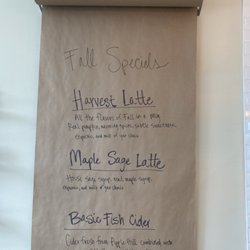 Fall Specials
Harvest Latte
All the flavors of Fall in a mug
Real pumpkin, warming spices, subtle sweetness,
espresso, and milk of your choice
Maple Sage Latte
House sage syrup, real maple syrup,
espresso, and milk of your choice
Basic Fish Cider
Cider fresh from Apple Hill combined with